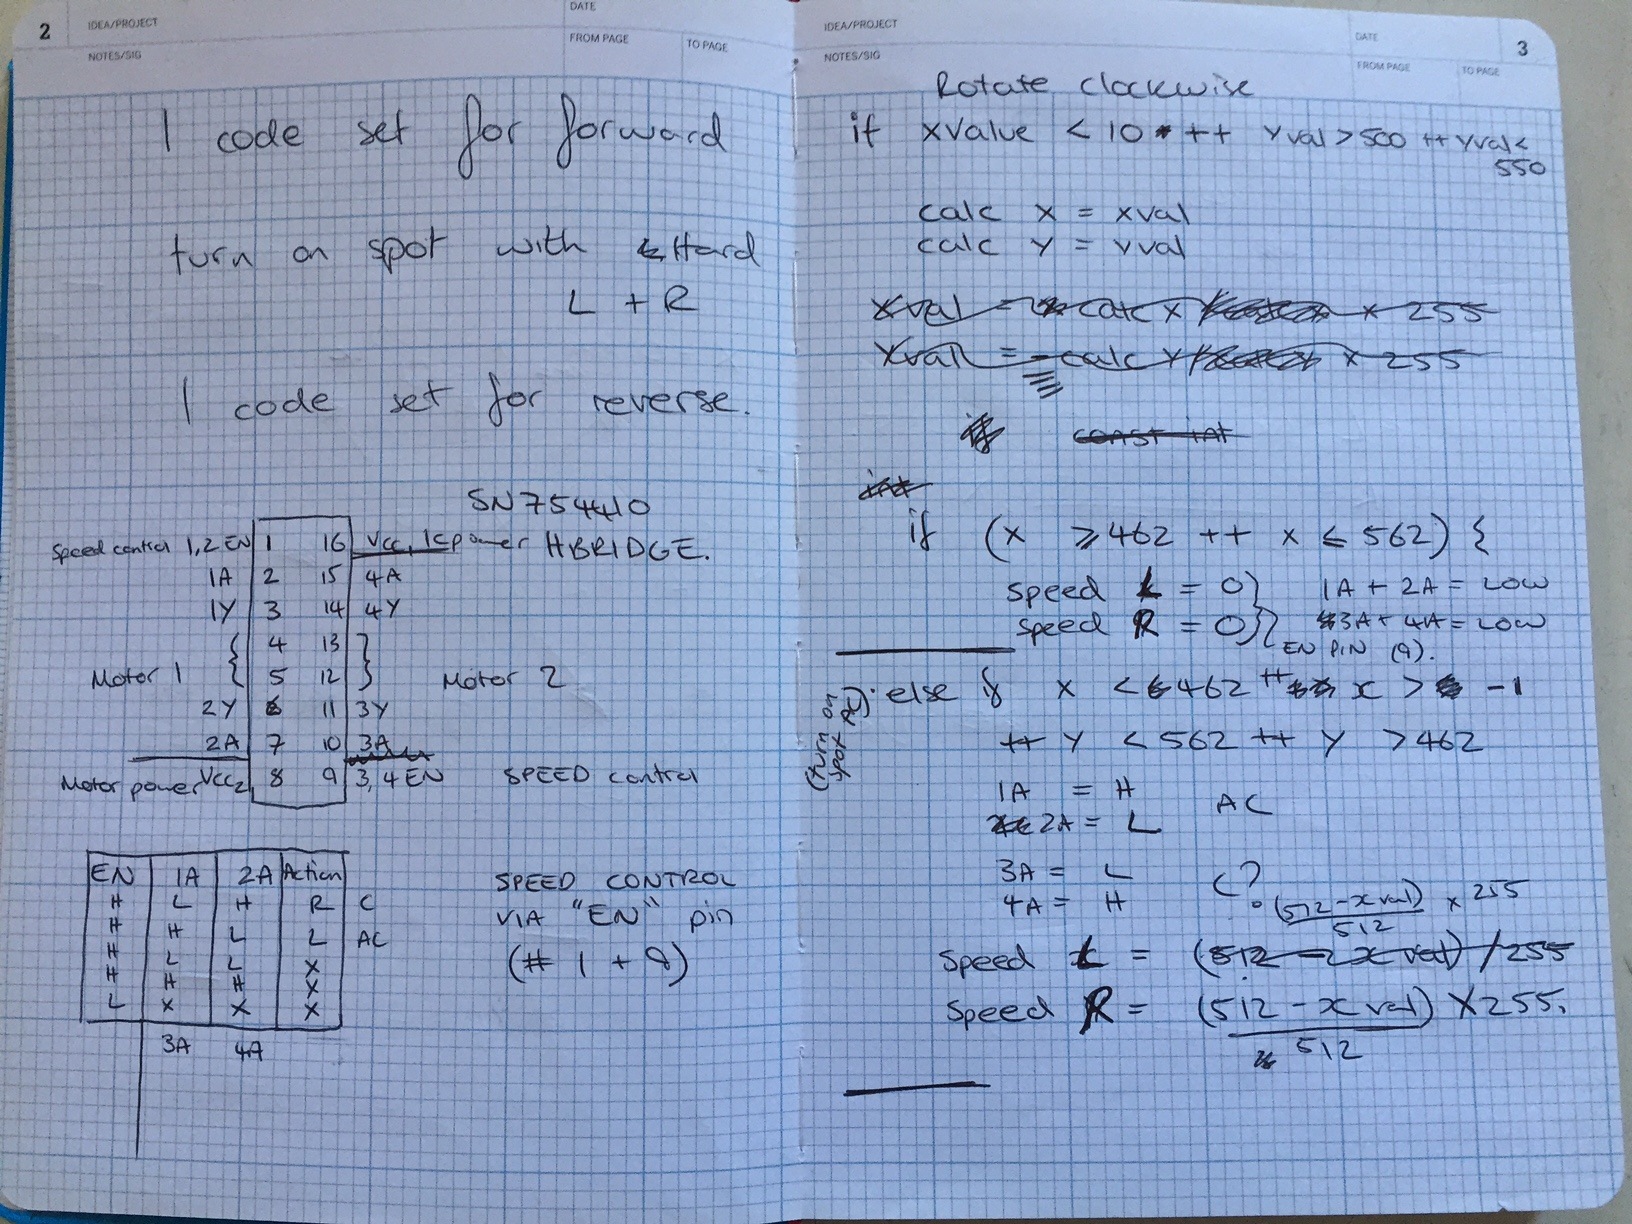 2
IDEA/PROJECT
DATE
NOTES/SIG
FROM PAGE
TO PAGE
1 code set for forward
turn on spot with Hard
L + R
1 code set for reverse.
SN754410
HBRIDGE.
Speed control 1,2 EN 1 16 Vcc, IC power
1A 2 15 4A
1Y 3 14 4Y
{ 4 13 }
Motor 1 { 5 12 } Motor 2
2Y 6 11 3Y
2A 7 10 3A
Motor power Vcc2 8 9 3,4 EN SPEED control
EN 1A 2A Action
H L H R C
H H L L AC
H L L X
H H H X
L X X X
3A 4A
SPEED CONTROL
VIA "EN" pin
(# 1 + 9)
3
IDEA/PROJECT
DATE
NOTES/SIG
FROM PAGE
TO PAGE
Rotate clockwise
if xvalue < 10 ++ yval > 500 ++ yval <
550
calc x = xval
calc y = yval
xval = calc x x 255
Yval = calc y x 255
if const int
int
if (x ≥ 462 ++ x ≤ 562) {
speed L = 0 } 1A + 2A = LOW
speed R = 0 } 3A + 4A = LOW
EN PIN (9).
(turn on
spot AC). else if x < 462 ++ x > -1
++ y < 562 ++ y > 462
1A = H
2A = L AC
3A = L
4A = H C?
(512 - xval) x 255
512
Speed L = (512 - xval) / 255
Speed R = (512 - xval) X 255.
512